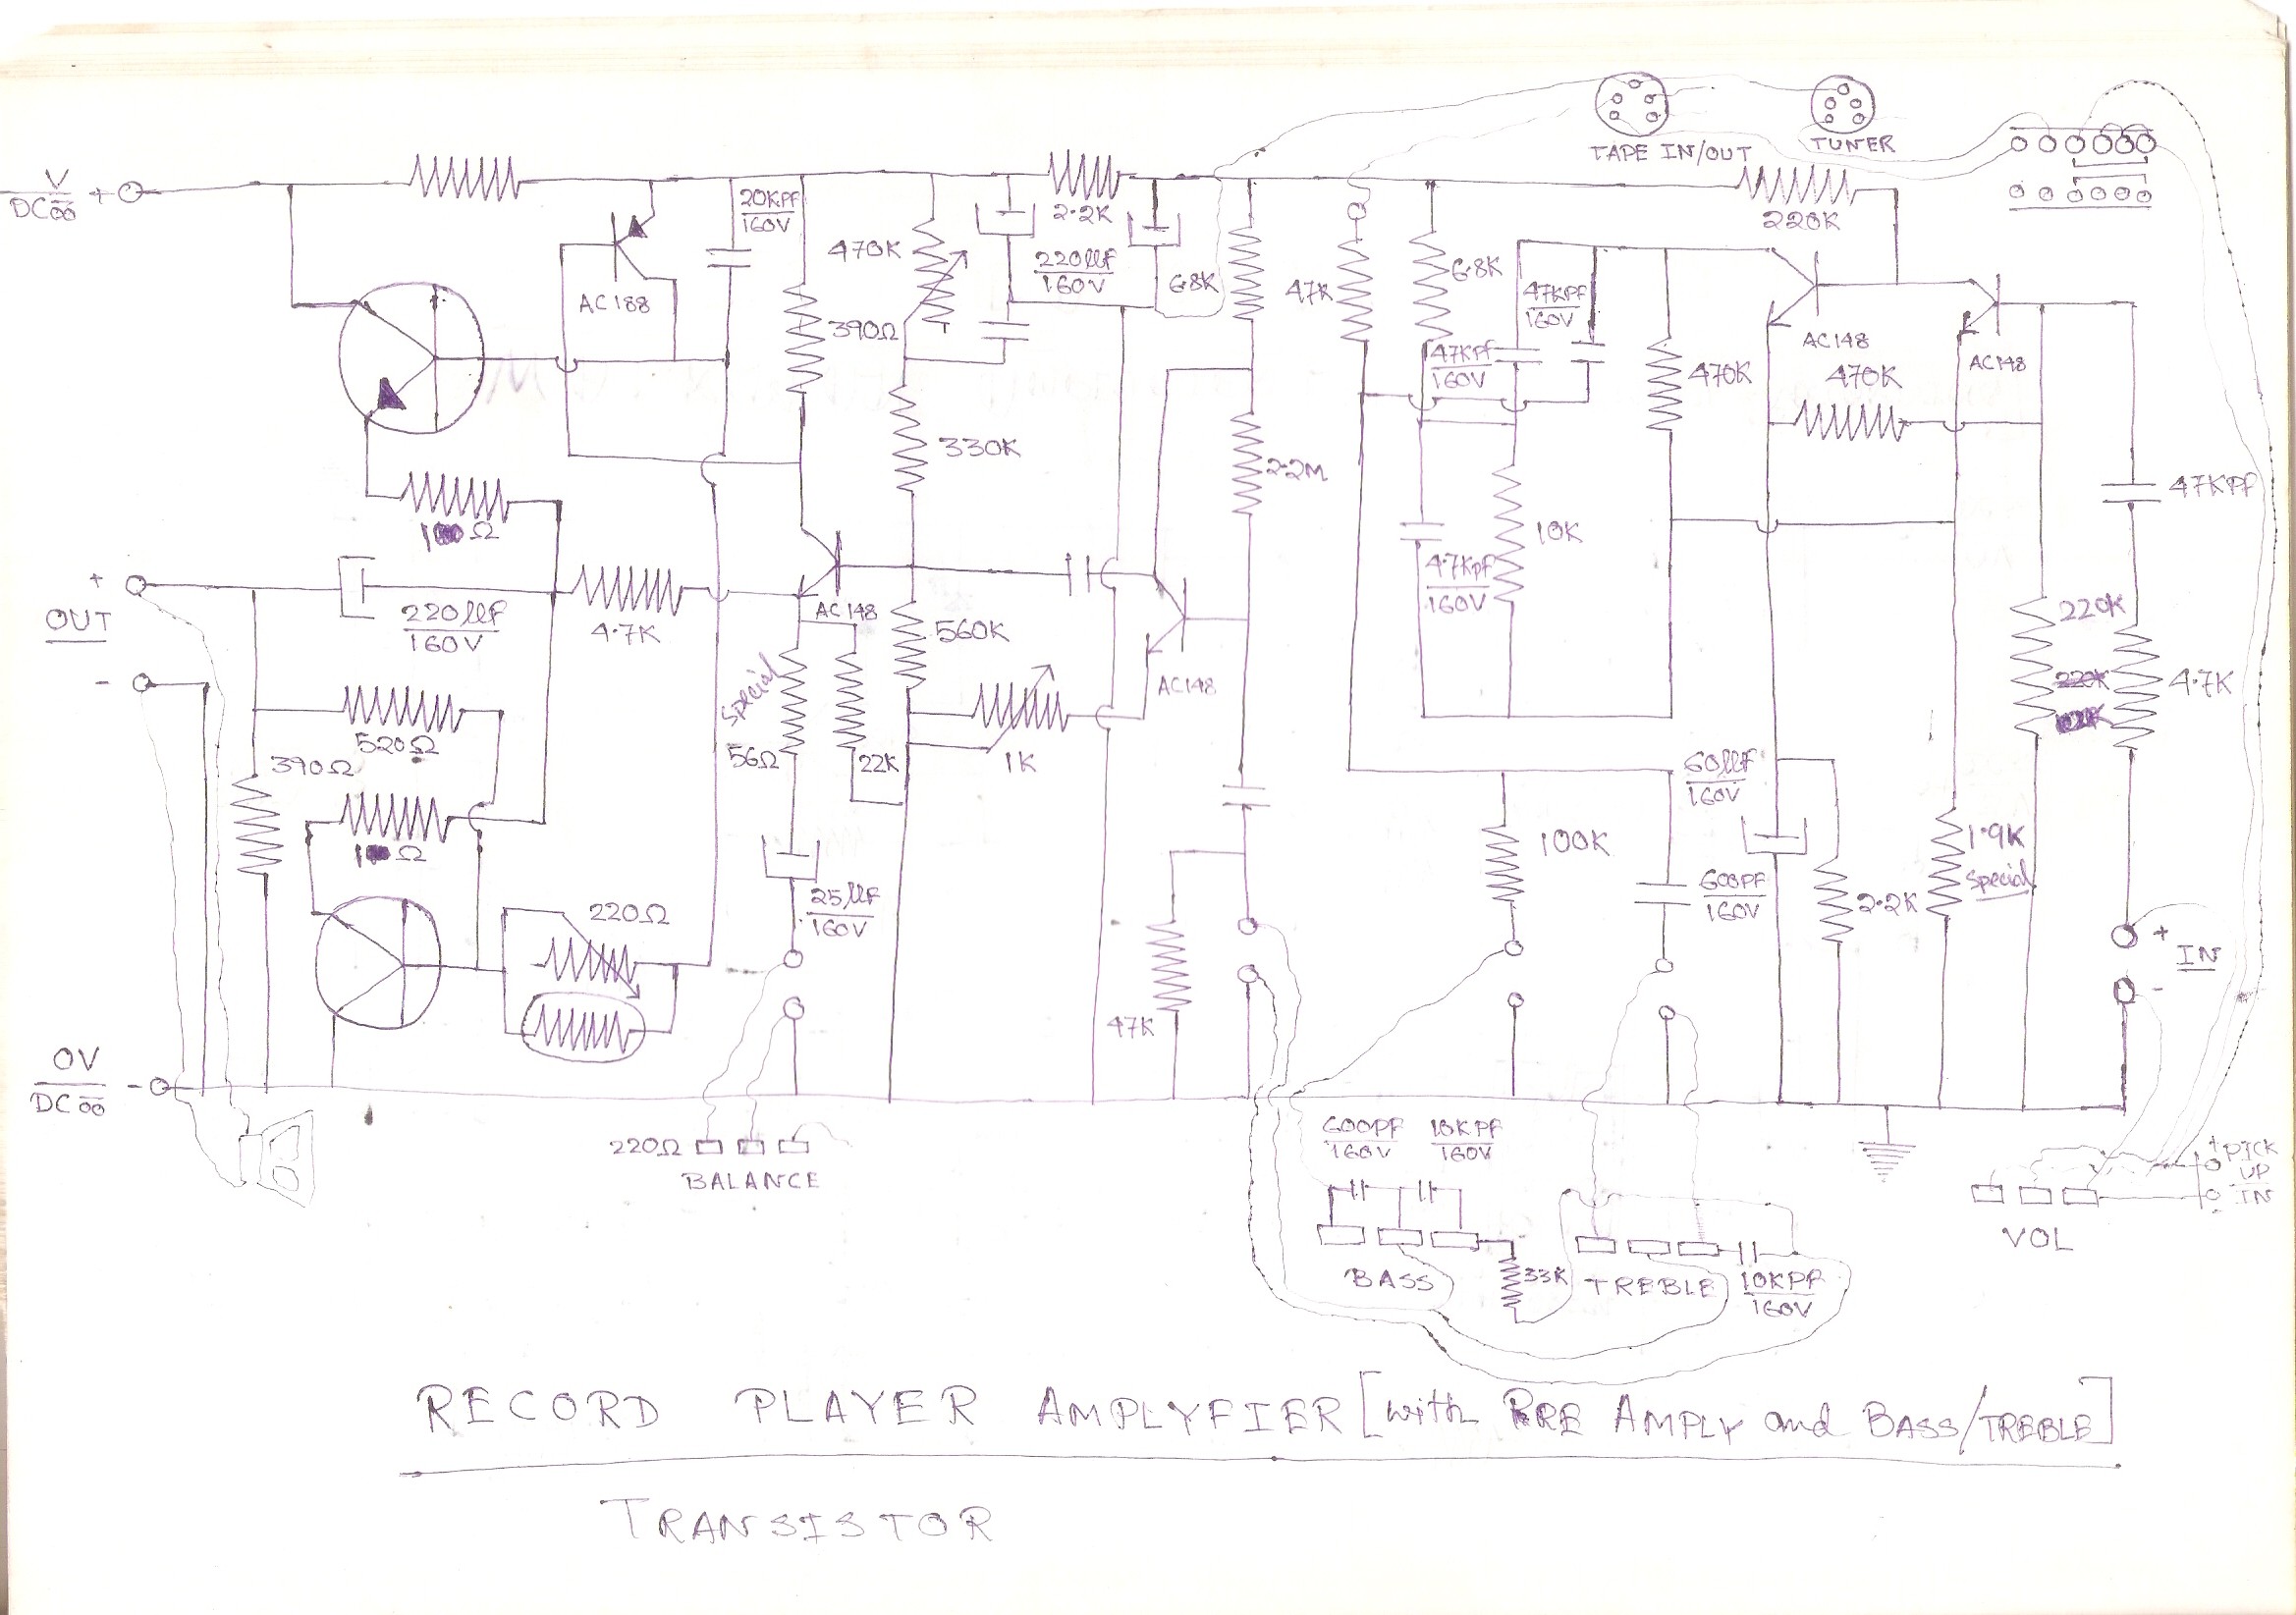 TAPE IN/OUT
TUNER
V
DC
+
20KPF
160V
2.2K
220K
470K
220µF
160V
6.8K
47K
6.8K
47KPF
160V
AC188
390Ω
47KPF
160V
AC148
AC148
470K
470K
330K
2.2M
47KPF
10K
Ω
+
OUT
-
220µF
160V
4.7K
AC148
560K
4.7KPF
160V
220K
220K
4.7K
AC148
Special
56Ω
22K
1K
520Ω
390Ω
Ω
60µF
160V
1.9K
Special
100K
25µF
160V
220Ω
600PF
160V
2.2K
+
IN
-
47K
0V
DC
-
220Ω
BALANCE
600PF
160V
10KPF
160V
+ PICK
UP
IN
VOL
BASS
33K
TREBLE
10KPF
160V
RECORD PLAYER AMPLYFIER [with PRE AMPLY and BASS/TREBLE]
TRANSISTOR